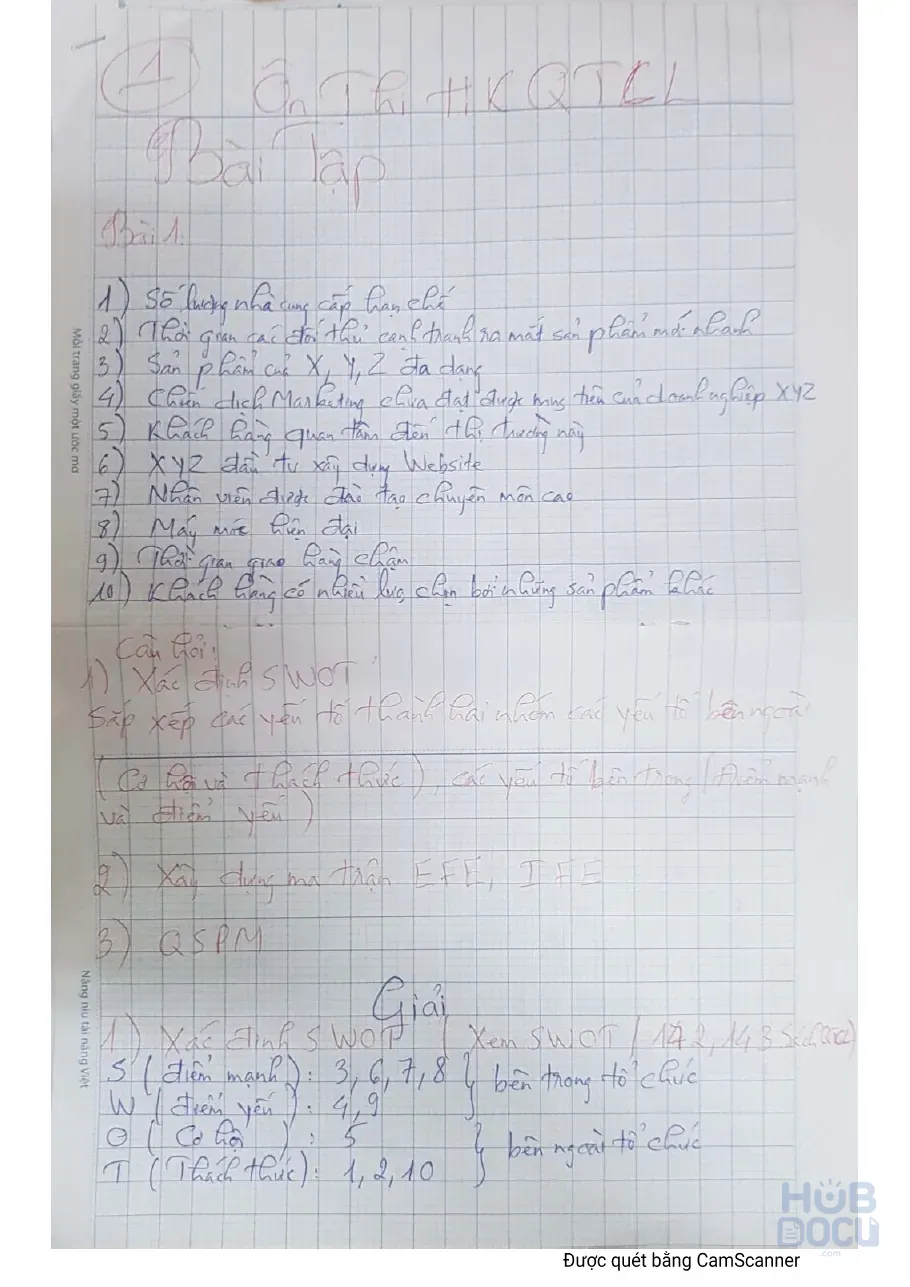 1 Ôn Thi HK QTCL
Bài Tập
Bài 1:
1) Số lượng nhà cung cấp hạn chế
2) Thời gian các đối thủ cạnh tranh ra mắt sản phẩm mới nhanh
3) Sản phẩm của X, Y, Z đa dạng
4) Chiến dịch Marketing chưa đạt được mục tiêu của doanh nghiệp XYZ
5) Khách hàng quan tâm đến thị trường này
6) XYZ đầu tư xây dựng Website
7) Nhân viên được đào tạo chuyên môn cao
8) Máy móc hiện đại
9) Thời gian giao hàng chậm
10) Khách hàng có nhiều lựa chọn bởi những sản phẩm khác
Câu hỏi:
1) Xác định SWOT
Sắp xếp các yếu tố thành hai nhóm các yếu tố bên ngoài
(Cơ hội và thách thức), các yếu tố bên trong (điểm mạnh
và điểm yếu)
2) Xây dựng ma trận EFE, IFE
3) QSPM
Giải
1) Xác định SWOT (Xem SWOT / 142, 143 Sách
S (điểm mạnh): 3, 6, 7, 8 } bên trong tổ chức
W (điểm yếu): 4, 9
O (Cơ hội): 5 } bên ngoài tổ chức
T (Thách thức): 1, 2, 10
Mỗi trang giấy một ước mơ
Nâng niu tài năng Việt
HUB
DOCU
.com
Được quét bằng CamScanner